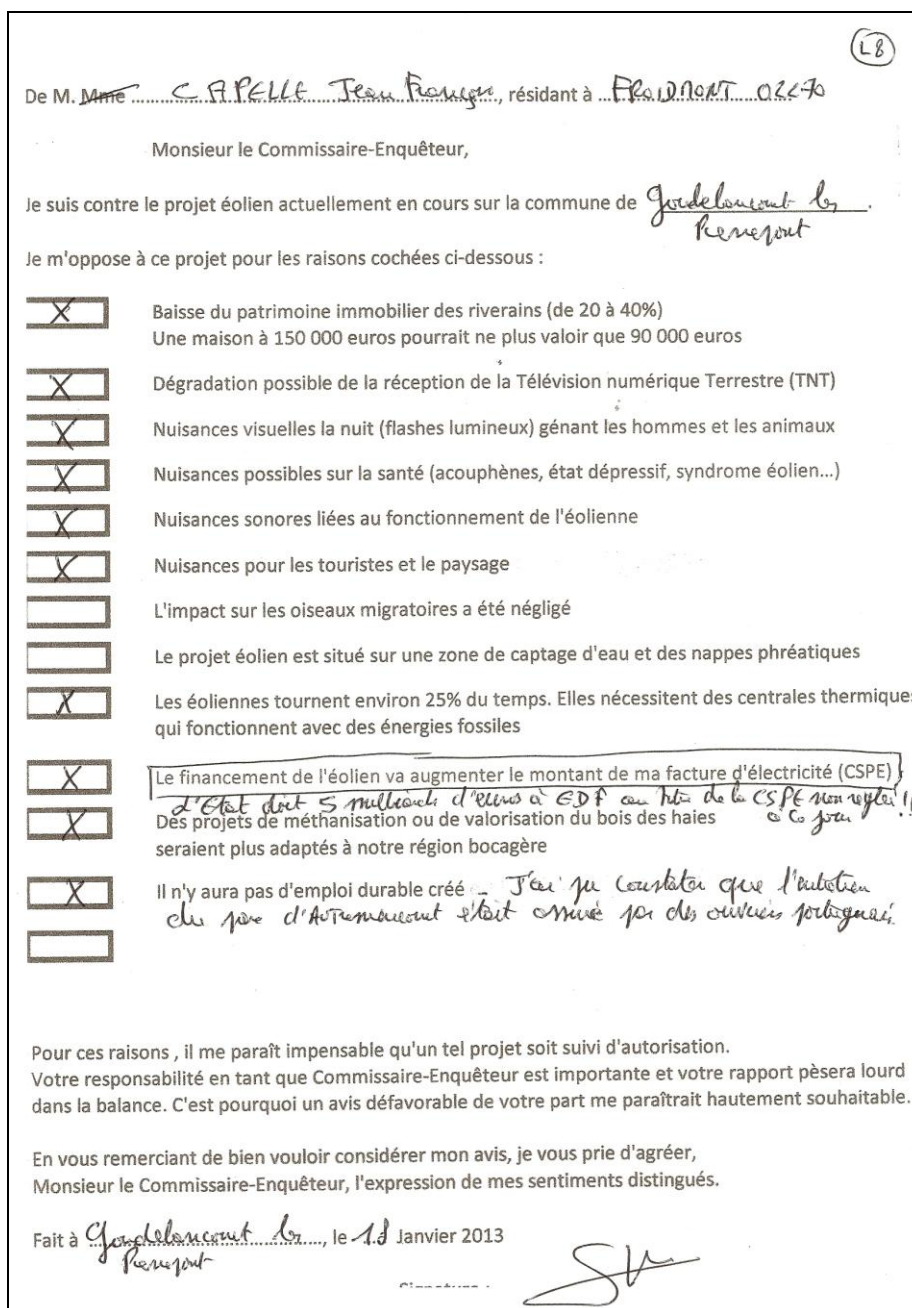 L8
De M. Mme CAPELLE Jean François, résidant à FROIDMONT 02270
Monsieur le Commissaire-Enquêteur,
Je suis contre le projet éolien actuellement en cours sur la commune de Goudelancourt les
Pierrepont
Je m'oppose à ce projet pour les raisons cochées ci-dessous :
X Baisse du patrimoine immobilier des riverains (de 20 à 40%)
Une maison à 150 000 euros pourrait ne plus valoir que 90 000 euros
X Dégradation possible de la réception de la Télévision numérique Terrestre (TNT)
X Nuisances visuelles la nuit (flashes lumineux) génant les hommes et les animaux
X Nuisances possibles sur la santé (acouphènes, état dépressif, syndrome éolien...)
X Nuisances sonores liées au fonctionnement de l'éolienne
X Nuisances pour les touristes et le paysage
L'impact sur les oiseaux migratoires a été négligé
Le projet éolien est situé sur une zone de captage d'eau et des nappes phréatiques
X Les éoliennes tournent environ 25% du temps. Elles nécessitent des centrales thermiques
qui fonctionnent avec des énergies fossiles
X Le financement de l'éolien va augmenter le montant de ma facture d'électricité (CSPE)
L'Etat doit 5 milliards d'euros à EDF au titre de la CSPE non réglés
à ce jour !!
X Des projets de méthanisation ou de valorisation du bois des haies
seraient plus adaptés à notre région bocagère
X Il n'y aura pas d'emploi durable créé - J'ai pu constater que l'entretien
du parc d'AUTREMENCOURT était assuré par des ouvriers portugais.
Pour ces raisons , il me paraît impensable qu'un tel projet soit suivi d'autorisation.
Votre responsabilité en tant que Commissaire-Enquêteur est importante et votre rapport pèsera lourd
dans la balance. C'est pourquoi un avis défavorable de votre part me paraîtrait hautement souhaitable.
En vous remerciant de bien vouloir considérer mon avis, je vous prie d'agréer,
Monsieur le Commissaire-Enquêteur, l'expression de mes sentiments distingués.
Fait à Goudelancourt les, le 18 Janvier 2013
Pierrepont
Signature :